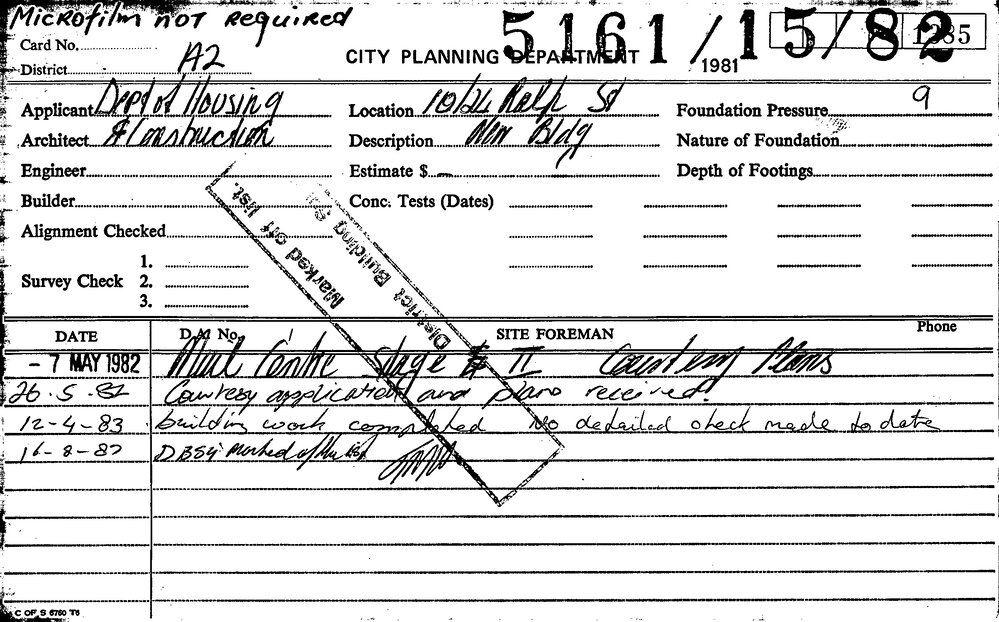 Microfilm not required
Card No.
5161/15/82
1985
District A2
CITY PLANNING DEPARTMENT
1981
Applicant Dept of Housing
Location 10/24 Ralph St
Foundation Pressure 9
Architect & Construction
Description New Bldg
Nature of Foundation
Engineer
Estimate $ —
Depth of Footings
Builder
Conc. Tests (Dates)
Alignment Checked
Survey Check 1.
2.
3.
Marked off list.
District Building
DATE
D.A. No.
SITE FOREMAN
Phone
- 7 MAY 1982 Mail Centre Stage II Courtesy Plans
26.5.82 Courtesy application and plans received.
12-4-83 building work completed No detailed check made to date
16-8-83 DBS4 marked off the list
C OF S 6760 T6